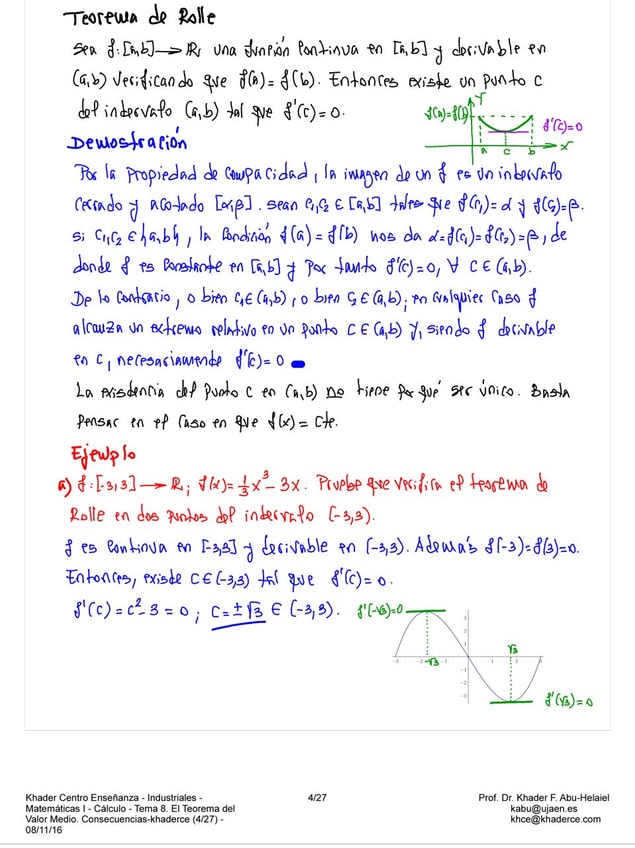 Teorema de Rolle
Sea f:[a,b]→ℝ, una función continua en [a,b] y derivable en
(a,b) verificando que f(a)=f(b). Entonces existe un punto c
del intervalo (a,b) tal que f'(c)=0.
f(a)=f(b)
Y
f'(c)=0
a c b X
Demostración
Por la propiedad de compacidad, la imagen de un f es un intervalo
cerrado y acotado [α,β]. Sean c₁,c₂ ∈ [a,b] tales que f(c₁)=α y f(c₂)=β.
Si c₁,c₂ ∈ {a,b}, la condición f(a)=f(b) nos da α=f(c₁)=f(c₂)=β, de
donde f es constante en [a,b] y por tanto f'(c)=0, ∀ c∈(a,b).
De lo contrario, o bien c₁∈(a,b), o bien c₂∈(a,b); en cualquier caso f
alcanza un extremo relativo en un punto c∈(a,b) y, siendo f derivable
en c, necesariamente f'(c)=0
La existencia del punto c en (a,b) no tiene por qué ser único. Basta
pensar en el caso en que f(x)=cte.
Ejemplo
a) f:[-3,3]→ℝ; f(x)=1/3x³-3x. Pruebe que verifica el teorema de
Rolle en dos puntos del intervalo (-3,3).
f es continua en [-3,3] y derivable en (-3,3). Además f(-3)=f(3)=0.
Entonces, existe c∈(-3,3) tal que f'(c)=0.
f'(c)=c²-3=0; c=±√3 ∈ (-3,3).
f'(-√3)=0
-√3
√3
f'(√3)=0
Khader Centro Enseñanza - Industriales -
Matemáticas I - Cálculo - Tema 8. El Teorema del
Valor Medio. Consecuencias-khaderce (4/27) -
08/11/16
4/27
Prof. Dr. Khader F. Abu-Helaiel
kabu@ujaen.es
khce@khaderce.com